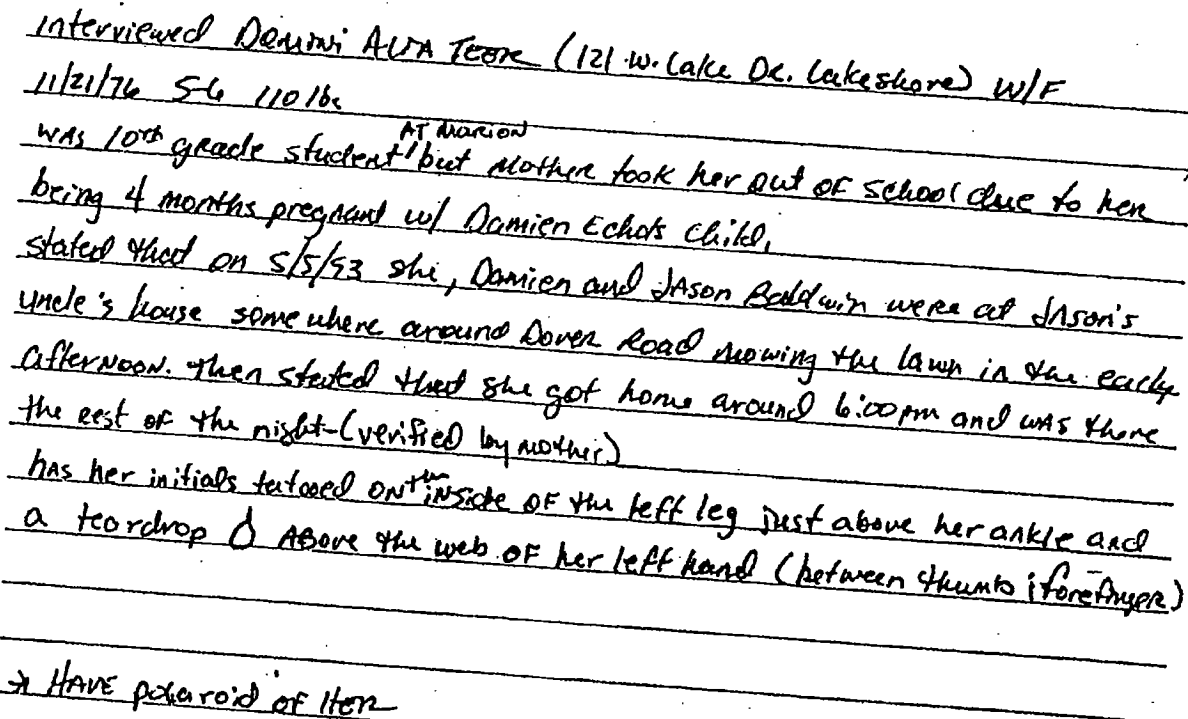 interviewed Domini Alia Teer (121 W. Lake Dr. Lakeshore) W/F
11/21/76 5-6 110 lbs
was 10th grade student AT MARION but mother took her out of school due to her
being 4 months pregnant w/ Damien Echols child.
stated that on 5/5/93 she, Damien and Jason Baldwin were at Jason's
uncle's house somewhere around Dover Road mowing the lawn in the early
afternoon. then stated that she got home around 6:00pm and was there
the rest of the night-(verified by mother)
has her initials tatooed on the inside of the left leg just above her ankle and
a teardrop above the web of her left hand (between thumb & forefinger)
* HAVE polaroid of Her